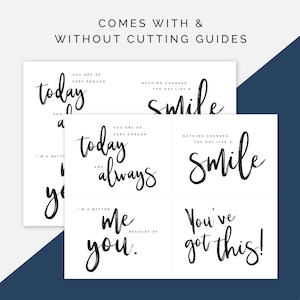 COMES WITH &
WITHOUT CUTTING GUIDES
YOU ARE SO
VERY ENOUGH
today
NOTHING CHANGES
THE DAY LIKE A
smile
I'M A BETTER
YOU ARE SO
VERY ENOUGH
today
AND
always
NOTHING CHANGES
THE DAY LIKE A
smile
I'M A BETTER
me
BECAUSE OF
you.
You've
got this!